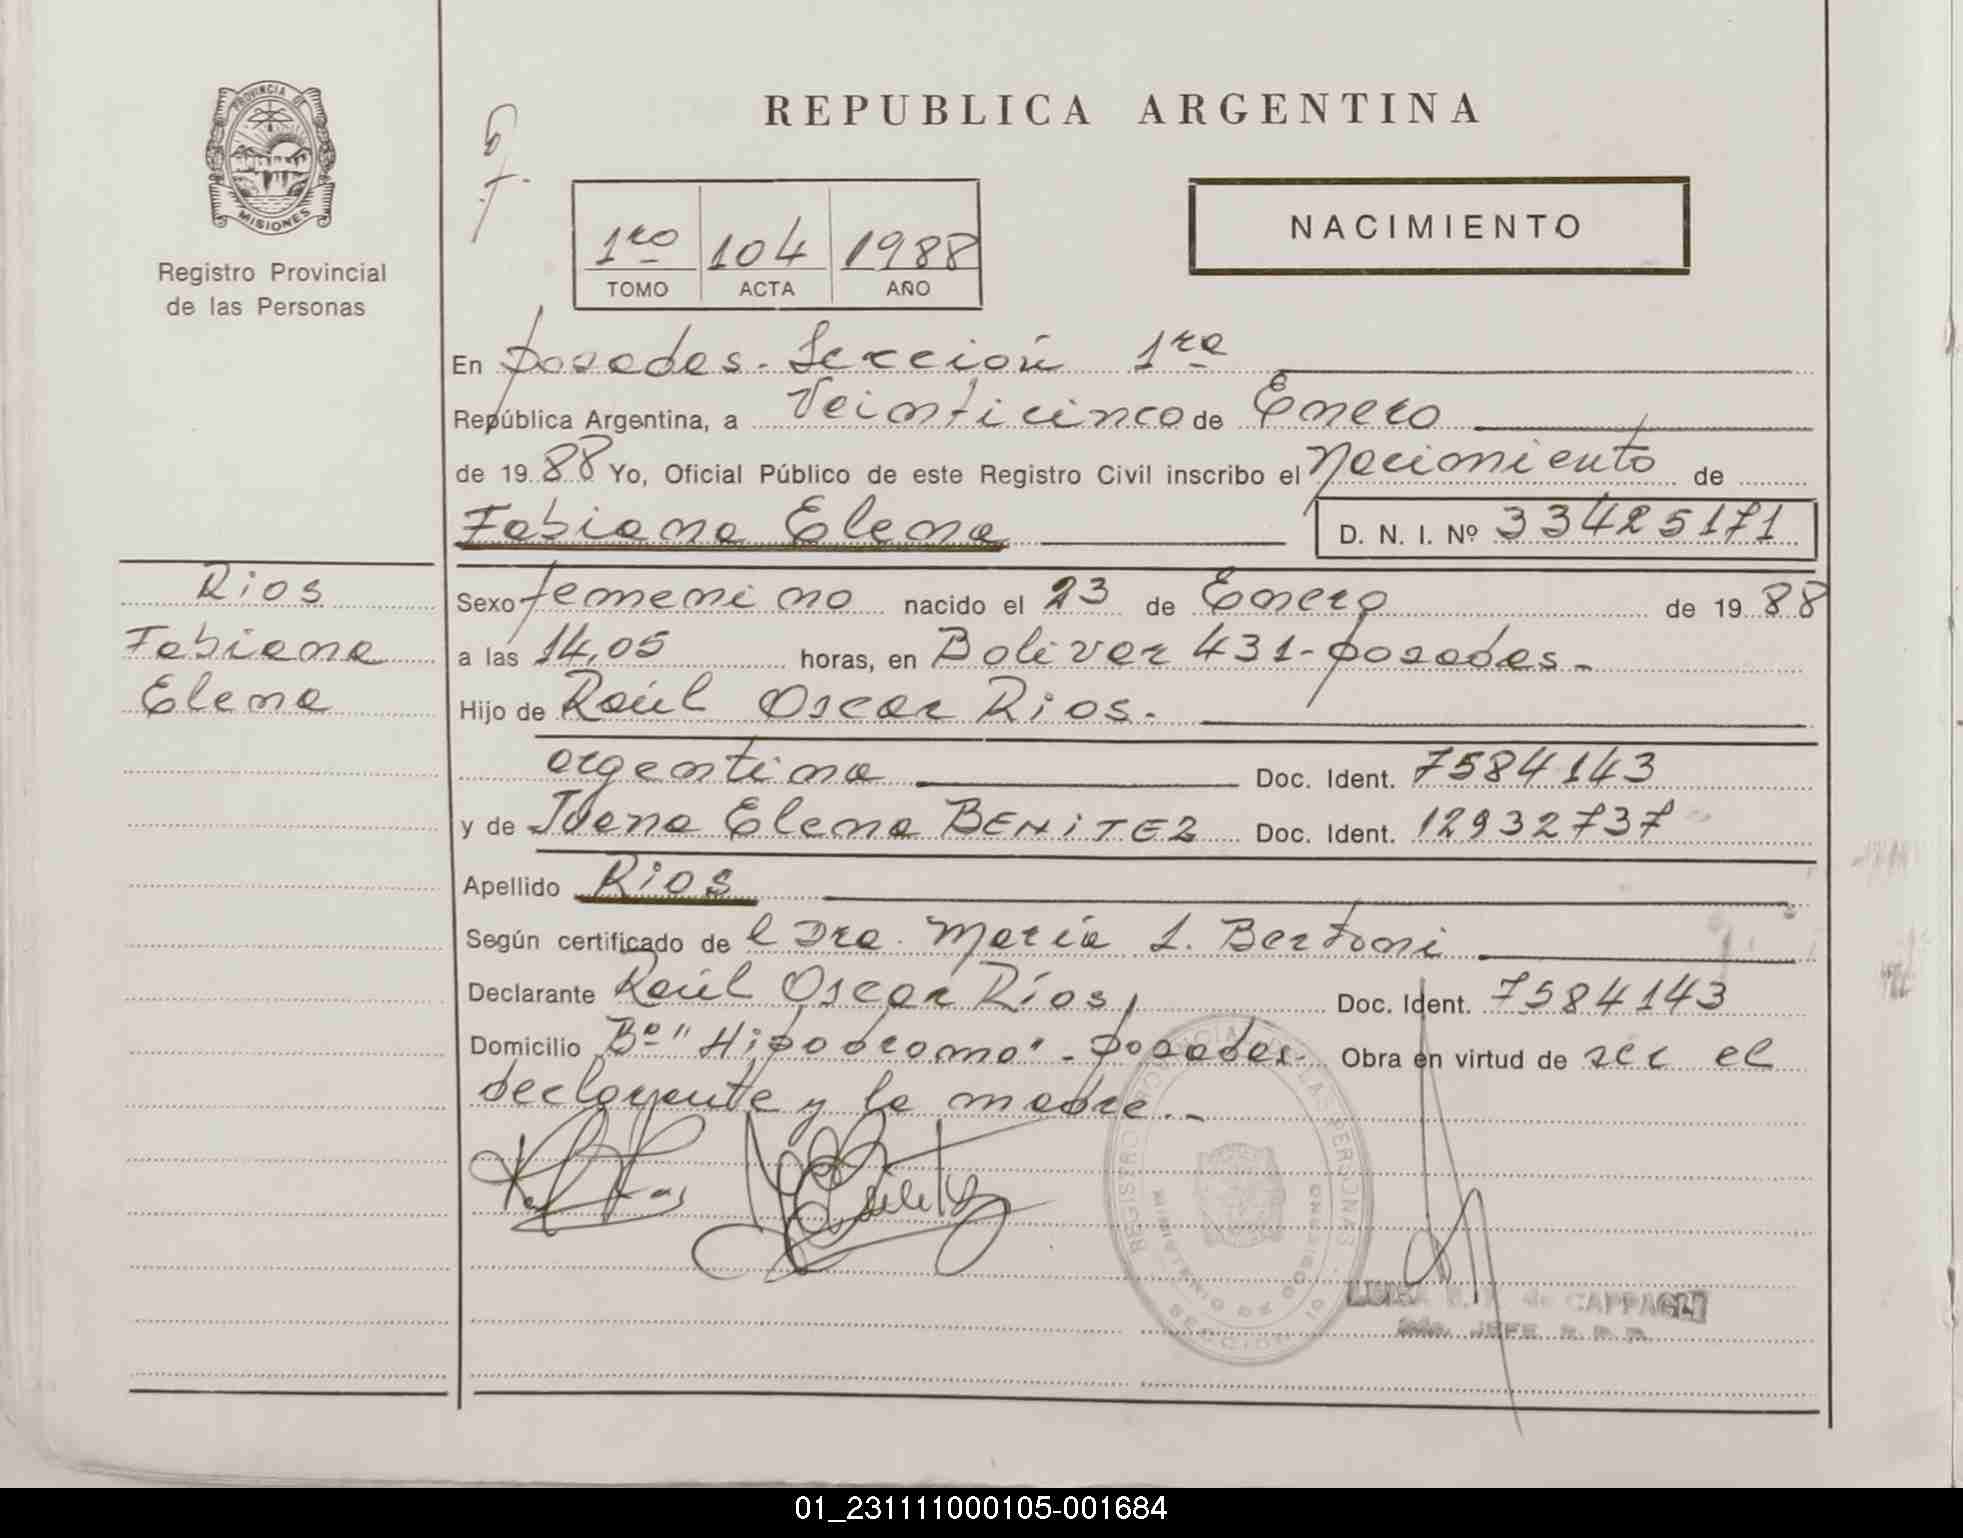 PROVINCIA DE
MISIONES
Registro Provincial
de las Personas
REPUBLICA ARGENTINA
1ro 104 1988
TOMO ACTA AÑO
NACIMIENTO
En Posadas. Sección 1ra
República Argentina, a Veinticinco de Enero
de 1988 Yo, Oficial Público de este Registro Civil inscribo el Nacimiento de
Fabiana Elena D. N. I. Nº 33425171
Rios
Fabiana
Elena
Sexo femenino nacido el 23 de Enero de 1988
a las 14,05 horas, en Bolivar 431-Posadas.-
Hijo de Raúl Oscar Rios.-
argentina Doc. Ident. 7584143
y de Juana Elena BENiTEZ Doc. Ident. 12932737
Apellido Rios
Según certificado de l Dra. María L. Bertoni
Declarante Raúl Oscar Ríos, Doc. Ident. 7584143
Domicilio Bº "Hipodromo"-Posadas- Obra en virtud de ser el
declarante y la madre.-
REGISTRO PROVINCIAL DE LAS PERSONAS
MINISTERIO DE GOBIERNO
LUISA de CAPPAGLI
JEFE R. P. P.
01_231111000105-001684